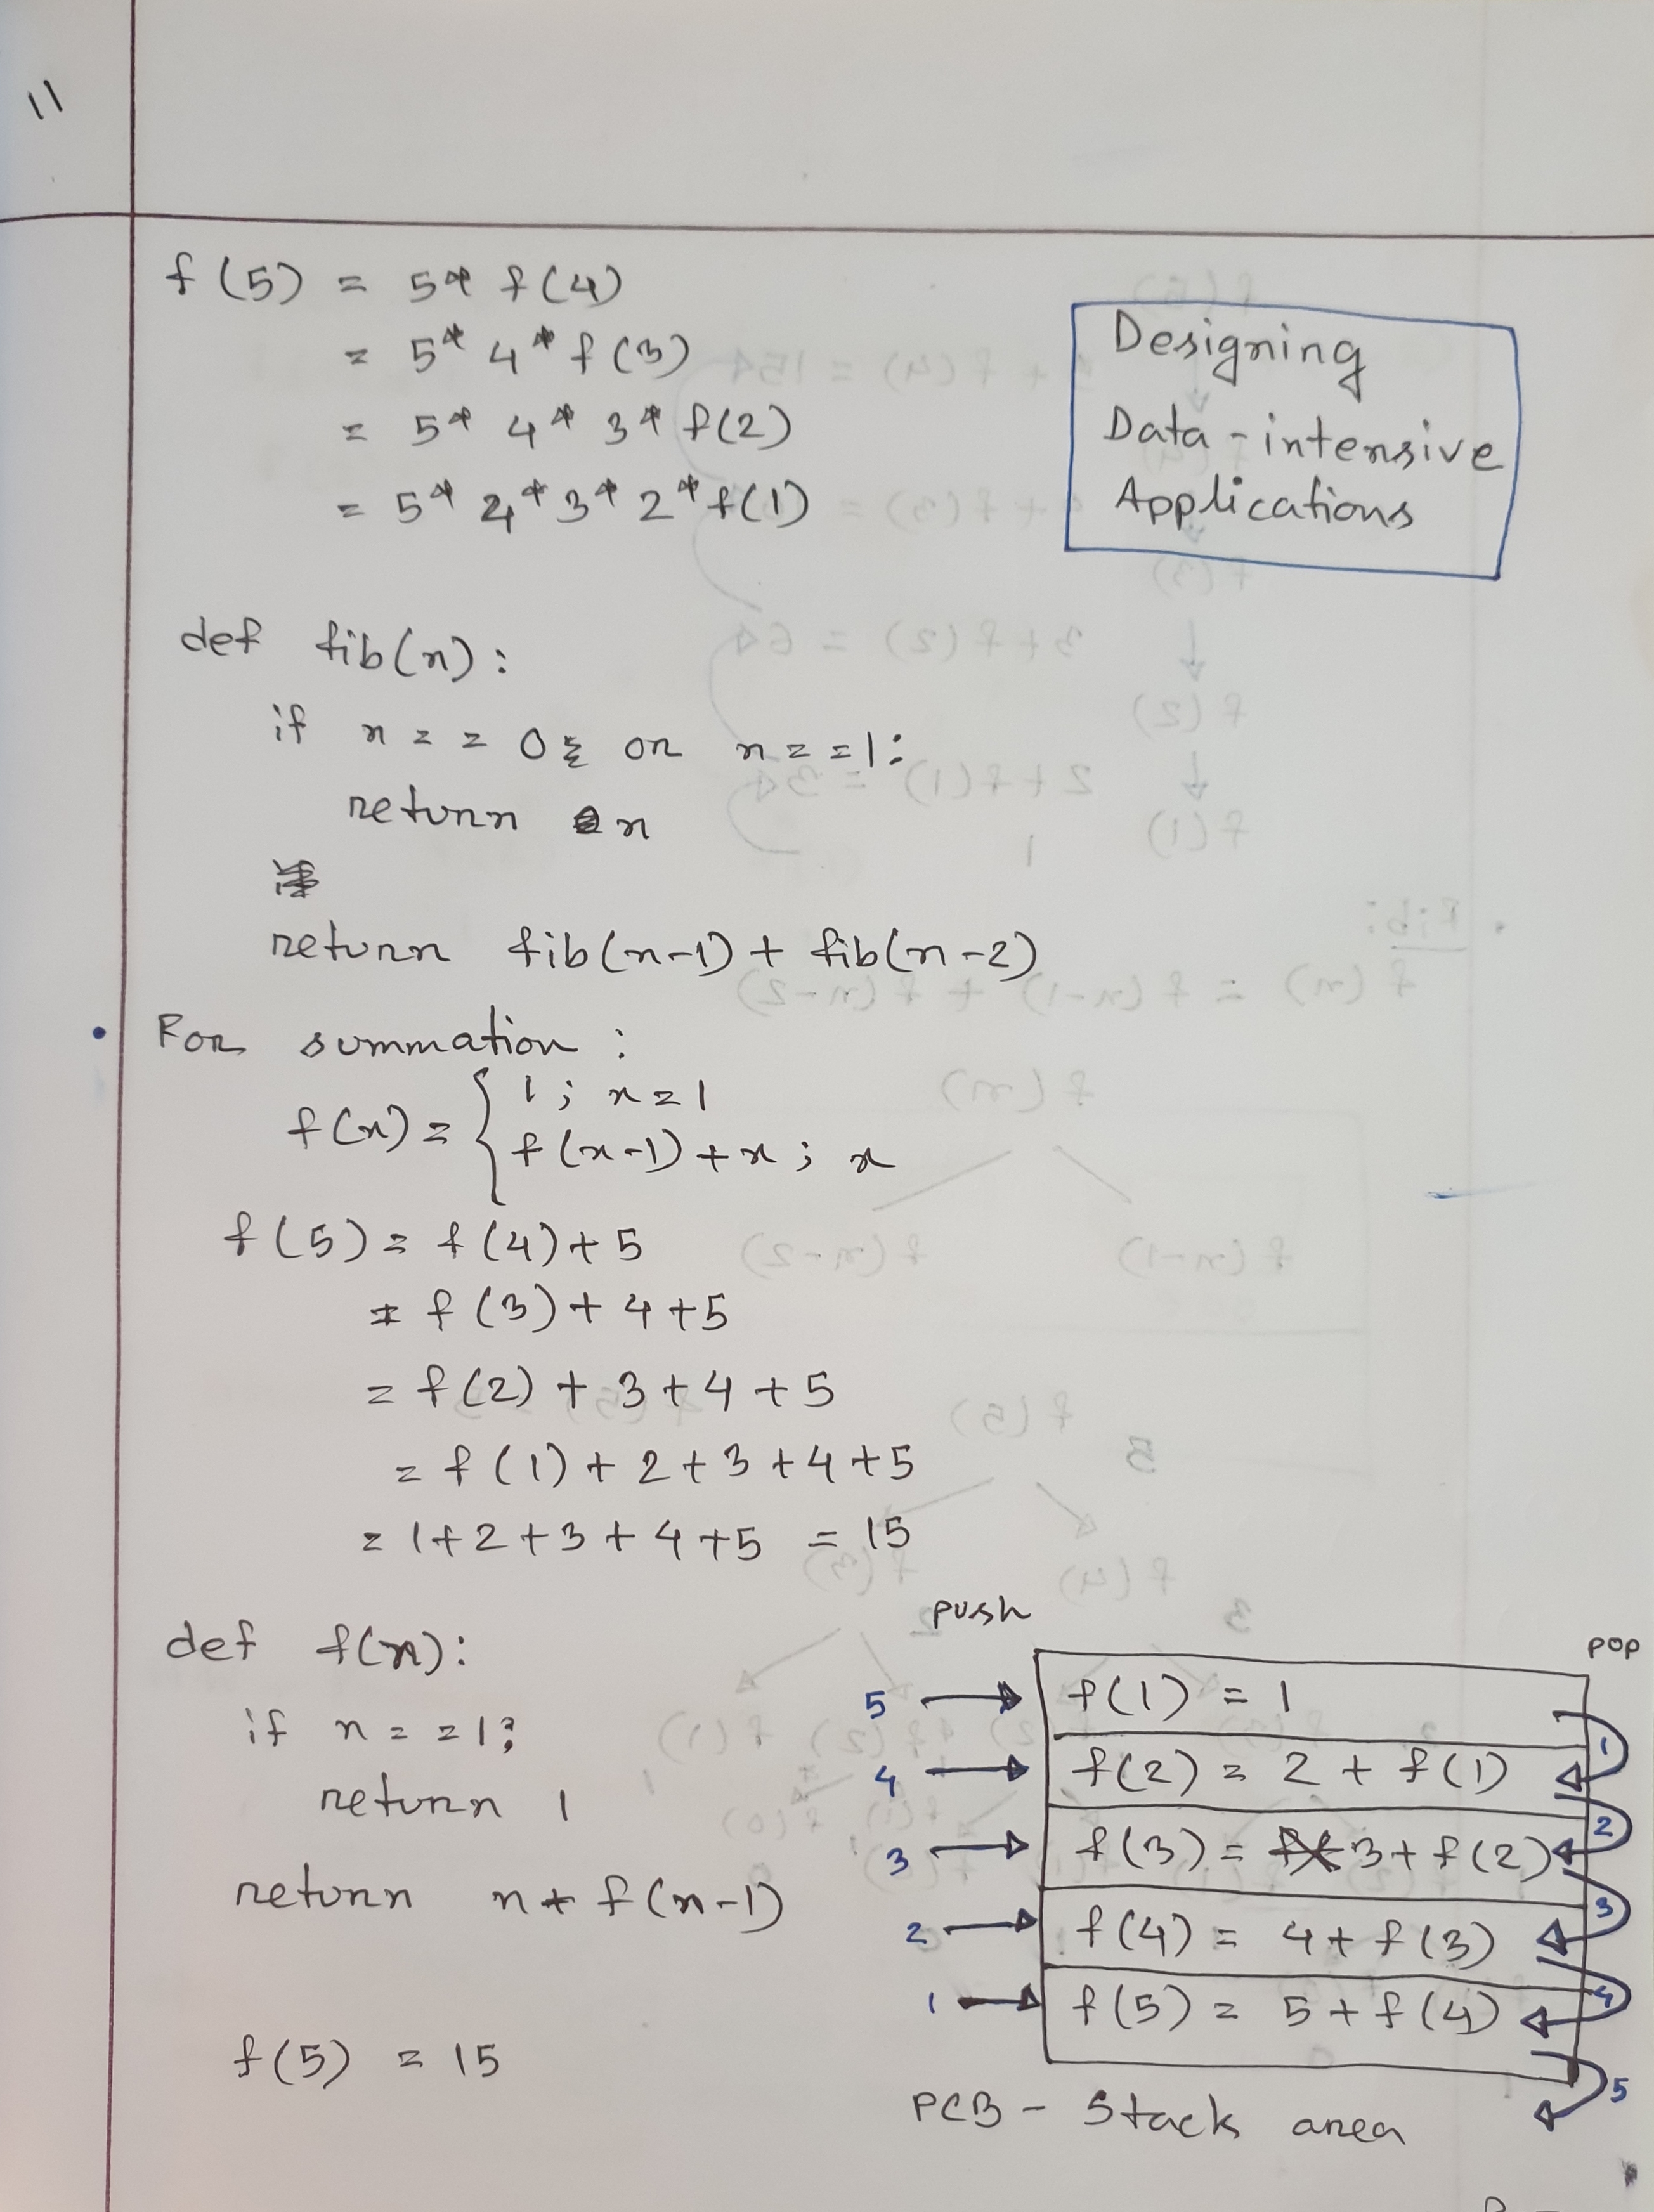 11
f(5) = 5* f(4)
= 5* 4* f(3)
= 5* 4* 3* f(2)
= 5* 4* 3* 2* f(1)
Designing
Data-intensive
Applications
def fib(n):
if n == 0 or n == 1:
return n
return fib(n-1) + fib(n-2)
• For summation :
f(x) = { 1 ; x = 1
f(x-1) + x ; x
f(5) = f(4) + 5
= f(3) + 4 + 5
= f(2) + 3 + 4 + 5
= f(1) + 2 + 3 + 4 + 5
= 1 + 2 + 3 + 4 + 5 = 15
def f(n):
if n == 1:
return 1
return n + f(n-1)
f(5) = 15
push
pop
5 → f(1) = 1
1
4 → f(2) = 2 + f(1)
2
3 → f(3) = 3 + f(2)
3
2 → f(4) = 4 + f(3)
4
1 → f(5) = 5 + f(4)
5
PCB - Stack area